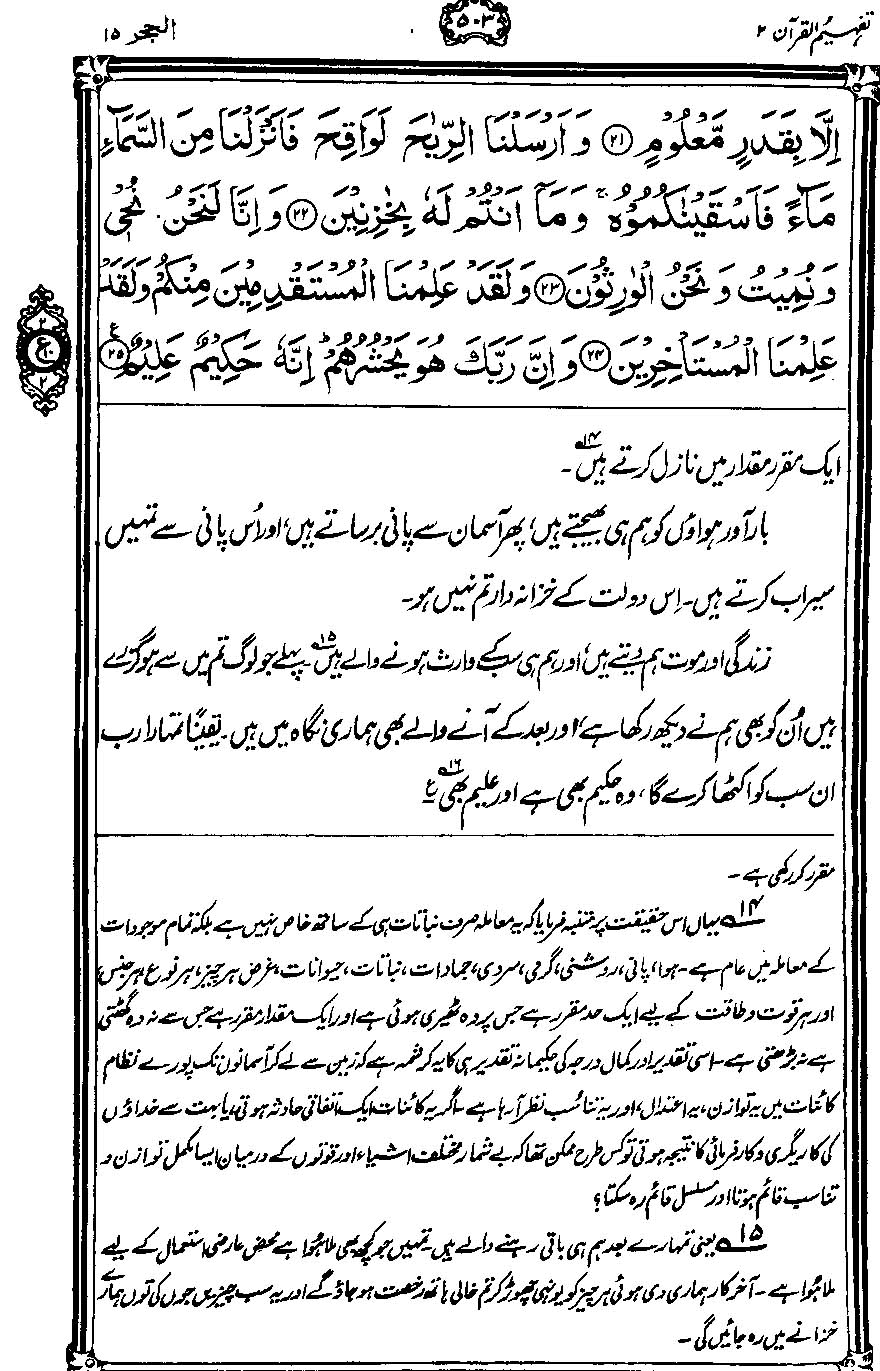 تفہیم القرآن ۲
۵۰۳
الحجر ۱۵
اِلَّا بِقَدَرٍ مَّعْلُوْمٍ ﴿۲۱﴾ وَاَرْسَلْنَا الرِّيٰحَ لَوَاقِحَ فَاَنْزَلْنَا مِنَ السَّمَآءِ
مَآءً فَاَسْقَيْنٰكُمُوْهُ ۚ وَمَآ اَنْتُمْ لَهٗ بِخٰزِنِيْنَ ﴿۲۲﴾ وَاِنَّا لَنَحْنُ نُحْيٖ
وَنُمِيْتُ وَنَحْنُ الْوٰرِثُوْنَ ﴿۲۳﴾ وَلَقَدْ عَلِمْنَا الْمُسْتَقْدِمِيْنَ مِنْكُمْ وَلَقَدْ
عَلِمْنَا الْمُسْتَاْخِرِيْنَ ﴿۲۴﴾ وَاِنَّ رَبَّكَ هُوَ يَحْشُرُهُمْ ؕ اِنَّهٗ حَكِيْمٌ عَلِيْمٌ ﴿۲۵﴾ ع
۲
ع
۲
ایک مقرر مقدار میں نازل کرتے ہیں۱۴۔
بارآور ہواؤں کو ہم ہی بھیجتے ہیں، پھر آسمان سے پانی برساتے ہیں، اور اُس پانی سے تمہیں
سیراب کرتے ہیں۔ اِس دولت کے خزانہ دار تم نہیں ہو۔
زندگی اور موت ہم دیتے ہیں، اور ہم ہی سب کے وارث ہونے والے ہیں۱۵۔ پہلے جو لوگ تم میں سے ہو گزرے
ہیں اُن کو بھی ہم نے دیکھ رکھا ہے، اور بعد کے آنے والے بھی ہماری نگاہ میں ہیں۔ یقیناً تمہارا رب
ان سب کو اکٹھا کرے گا، وہ حکیم بھی ہے اور علیم بھی۱۶۔ ع
مقرر کر رکھی ہے۔
۱۴ یہاں اس حقیقت پر متنبہ فرمایا کہ یہ معاملہ صرف نباتات ہی کے ساتھ خاص نہیں ہے بلکہ تمام موجودات
کے معاملہ میں عام ہے۔ ہوا، پانی، روشنی، گرمی، سردی، جمادات، نباتات، حیوانات، غرض ہر چیز، ہر نوع، ہر جنس
اور ہر قوت و طاقت کے لیے ایک حد مقرر ہے جس پر وہ ٹھیری ہوئی ہے اور ایک مقدار مقرر ہے جس سے نہ وہ گھٹتی
ہے نہ بڑھتی ہے۔ اسی تقدیر اور کمال درجہ کی حکیمانہ تقدیر ہی کا یہ کرشمہ ہے کہ زمین سے لے کر آسمانوں تک پورے نظام
کائنات میں یہ توازن، یہ اعتدال، اور یہ تناسب نظر آ رہا ہے۔ اگر یہ کائنات ایک اتفاقی حادثہ ہوتی، یا بہت سے خداؤں
کی کاریگری و کارفرمائی کا نتیجہ ہوتی تو کس طرح ممکن تھا کہ بے شمار مختلف اشیاء اور قوتوں کے درمیان ایسا مکمل توازن و
تناسب قائم ہوتا اور مسلسل قائم رہ سکتا؟
۱۵ یعنی تمہارے بعد ہم ہی باقی رہنے والے ہیں۔ تمہیں جو کچھ بھی ملا ہُوا ہے محض عارضی استعمال کے لیے
ملا ہُوا ہے۔ آخر کار ہماری دی ہوئی ہر چیز کو یونہی چھوڑ کر تم خالی ہاتھ رخصت ہو جاؤ گے اور یہ سب چیزیں جوں کی توں ہمارے
خزانے میں رہ جائیں گی۔